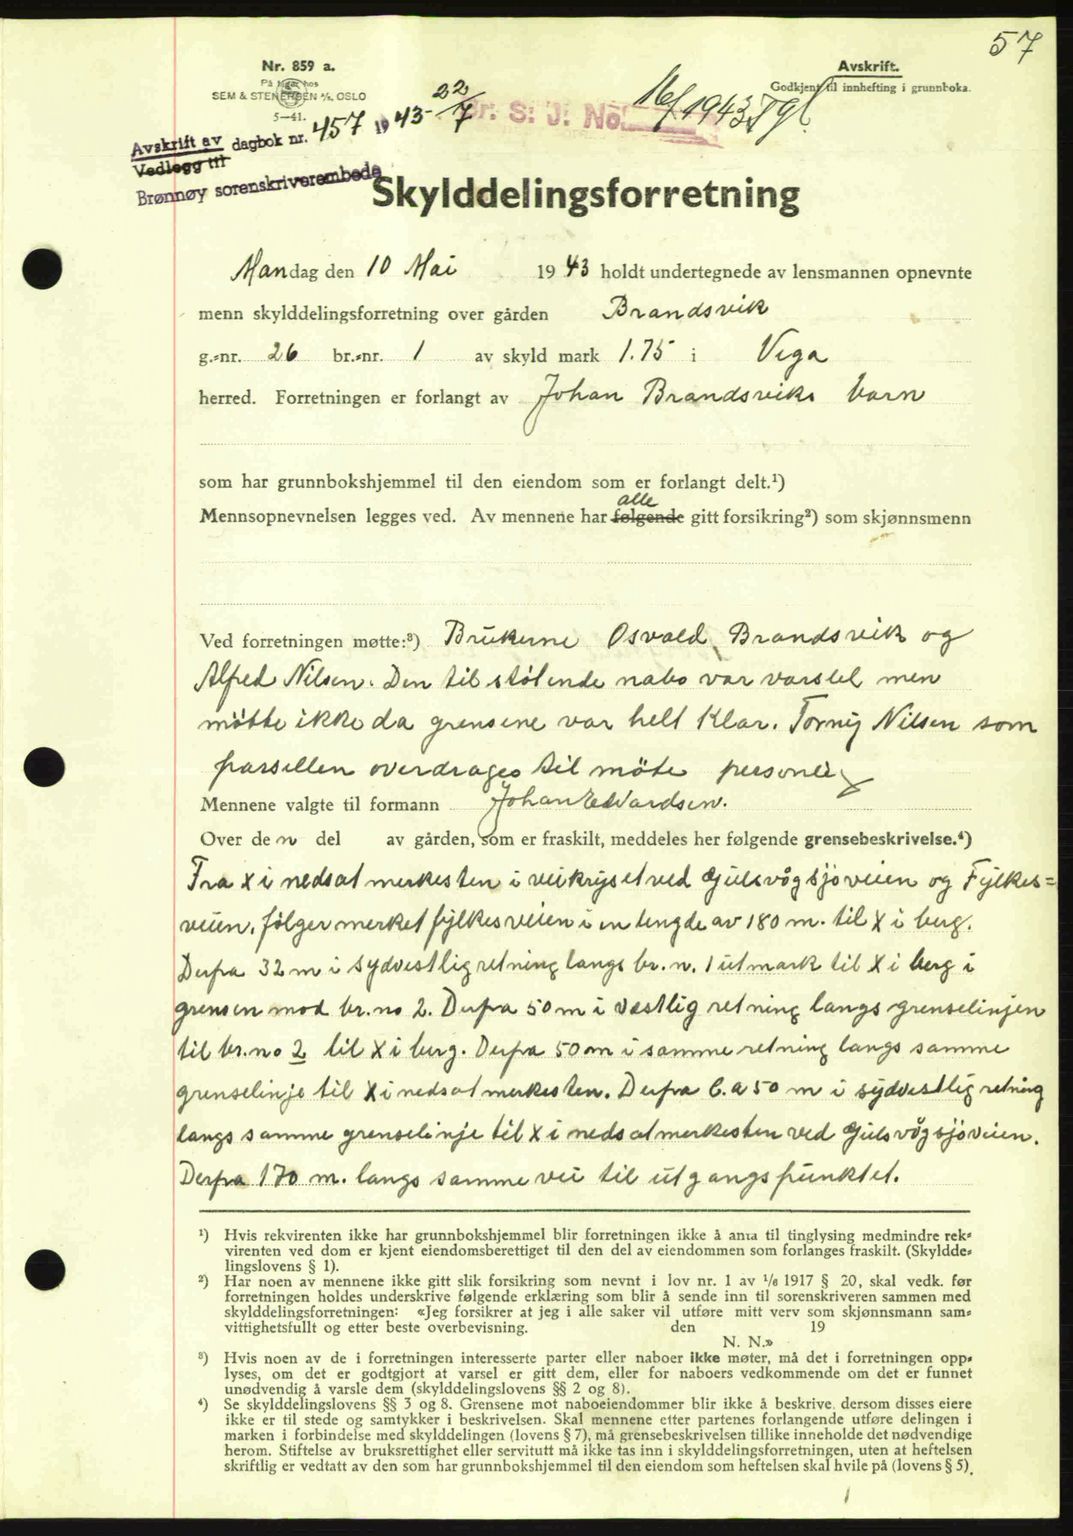 57
Nr. 859 a.
På lager hos
SEM & STENERSEN A/S, OSLO
5—41.
Avskrift.
Godkjent til innhefting i grunnboka.
Avskrift av dagbok nr. 457 1943 - 22/7
Vedlegg til
Brønnøy sorenskriverembede
S. J. No.
16/1943 Tgl.
Skylddelingsforretning
Mandag den 10 Mai 1943 holdt undertegnede av lensmannen opnevnte
menn skylddelingsforretning over gården Brandsvik
g.-nr. 26 br.-nr. 1 av skyld mark 1.75 i Vega
herred. Forretningen er forlangt av Johan Brandsviks barn
som har grunnbokshjemmel til den eiendom som er forlangt delt.¹)
alle
Mennsopnevnelsen legges ved. Av mennene har følgende gitt forsikring²) som skjønnsmenn
Ved forretningen møtte:³) Brukerne Osvald Brandsvik og
Alfred Nilsen. Den til støtende nabo var varslet men
møtte ikke da grensene var helt klar. Torny Nilsen som
parsellen overdrages til møte personlig
Mennene valgte til formann Johan Edvardsen.
Over den del av gården, som er fraskilt, meddeles her følgende grensebeskrivelse.⁴)
Fra X i nedsat merkesten i veikryset ved Gulsvågsjøveien og Fylkes=
veien, følger merket fylkesveien i en lengde av 180 m. til X i berg.
Derfra 32 m i sydvestlig retning langs br. n. 1 utmark til X i berg i
grensen mod br. no 2. Derfra 50 m i vestlig retning langs grenselinjen
til br. no 2 til X i berg. Derfra 50 m i samme retning langs samme
grenselinje til X i nedsat merkesten. Derfra C. a 50 m i sydvestlig retning
langs samme grenselinje til X i nedsat merkesten ved Gulsvågsjøveien.
Derfra 170 m. langs samme vei til utgangspunktet.
¹) Hvis rekvirenten ikke har grunnbokshjemmel blir forretningen ikke å anta til tinglysing medmindre rek-
virenten ved dom er kjent eiendomsberettiget til den del av eiendommen som forlanges fraskilt. (Skyldde-
lingslovens § 1).
²) Har noen av mennene ikke gitt slik forsikring som nevnt i lov nr. 1 av 1/6 1917 § 20, skal vedk. før
forretningen holdes underskrive følgende erklæring som blir å sende inn til sorenskriveren sammen med
skylddelingsforretningen: «Jeg forsikrer at jeg i alle saker vil utføre mitt verv som skjønnsmann sam-
vittighetsfullt og etter beste overbevisning. den 19
N. N.»
³) Hvis noen av de i forretningen interesserte parter eller naboer ikke møter, må det i forretningen opp-
lyses, om det er godtgjort at varsel er gitt dem, eller for naboers vedkommende om det er funnet
unødvendig å varsle dem (skylddelingslovens §§ 2 og 8).
⁴) Se skylddelingslovens §§ 3 og 8. Grensene mot naboeiendommer blir ikke å beskrive, dersom disses eiere
ikke er til stede og samtykker i beskrivelsen. Skal mennene etter partenes forlangende utføre delingen i
marken i forbindelse med skylddelingen (lovens § 7), må grensebeskrivelsen tillike inneholde det nødvendige
herom. Stiftelse av bruksrettighet eller servitutt må ikke tas inn i skylddelingsforretningen, uten at heftelsen
skriftlig er vedtatt av den som har grunnbokshjemmel til den eiendom som heftelsen skal hvile på (lovens § 5).